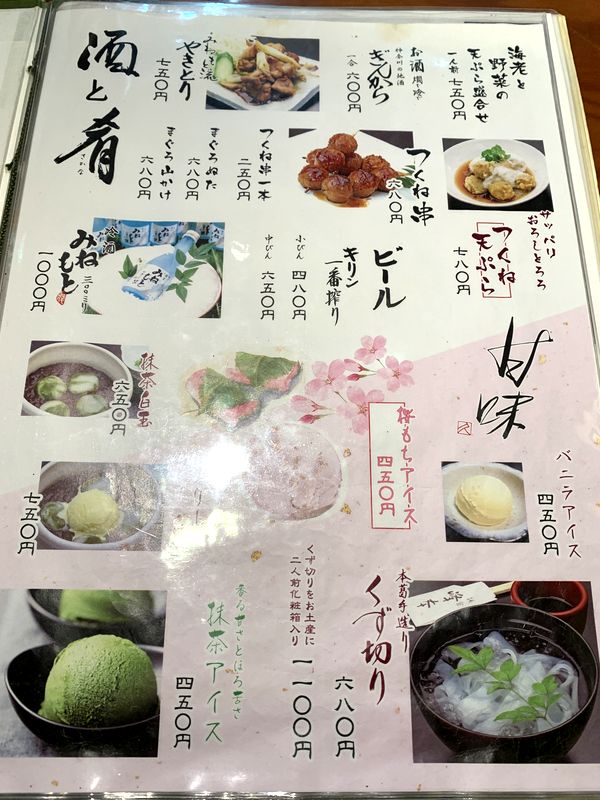 酒と肴
さかな
海老と
野菜の
天ぷら盛合せ
一人前 七五〇円
神奈川の地酒
お酒 燗・冷
ぎんから
一合 六〇〇円
やきとり
七五〇円
つくね串
六八〇円
つくね串一本
二五〇円
まぐろぬた
六八〇円
まぐろ山かけ
六八〇円
サッパリ
おろしとろろ
つくね
天ぷら
七八〇円
ビール
キリン
一番搾り
小びん 四八〇円
中びん 六五〇円
冷酒
みねもと
三〇〇ミリ
一〇〇〇円
甘味
バニラアイス
四五〇円
桜もちアイス
四五〇円
抹茶白玉
六五〇円
七五〇円
本葛手造り
くず切り
六八〇円
くず切りをお土産に
二人前化粧箱入り
一一〇〇円
香る甘さとほろ苦さ
抹茶アイス
四五〇円